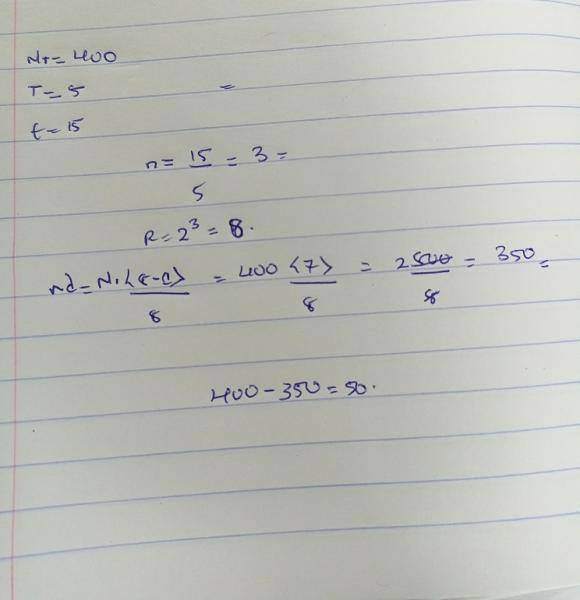 N1 = 400
T = 5 =
t = 15
n = 15/5 = 3 =
R = 2³ = 8.
nd = N1 (R-1)/8 = 400 (7)/8 = 2800/8 = 350 =
400 - 350 = 50.